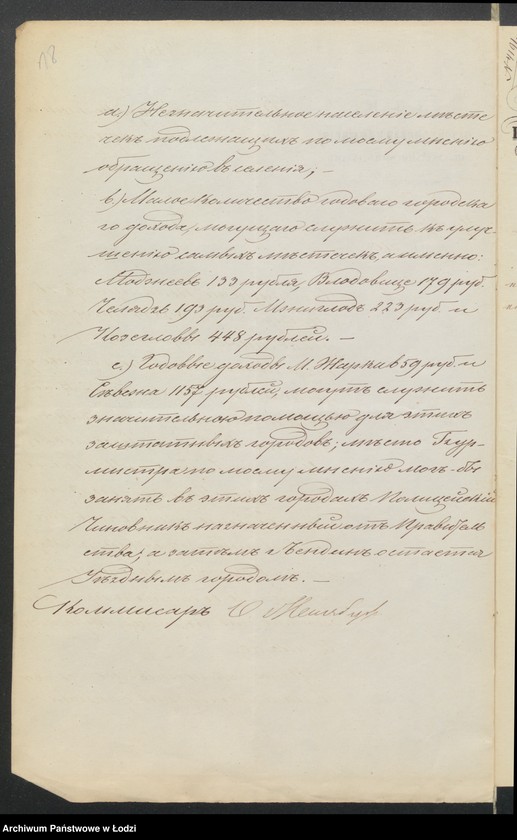 а.) Незначительное населеніе мѣсте
чекъ подлежащихъ по моему мнѣнію
обращенію въ селенія; —
b.) Малое количество годоваго городска
го дохода, могущаго служить къ улуч
шенію самыхъ мѣстечекъ, а именно:
133 рубля, Влодовице 179 руб.
Челядзь 193 руб. Мржиглодъ 223 руб. и
Козегловы 448 рублей. —
с.) Годовые доходы М. Жарки в 59 руб. и
Сѣвежа 1157 рублей, могутъ служить
значительною помощью для этихъ
заштатныхъ городовъ; мѣсто Бур-
мистра по моему мнѣнію могъ бы
занять въ этихъ городахъ Полицейскій
Чиновникъ назначенный отъ Правитель
ства; а затѣмъ г. Бендинъ остается
Уѣзднымъ городомъ. —
Коммисаръ
Archiwum Państwowe w Łodzi